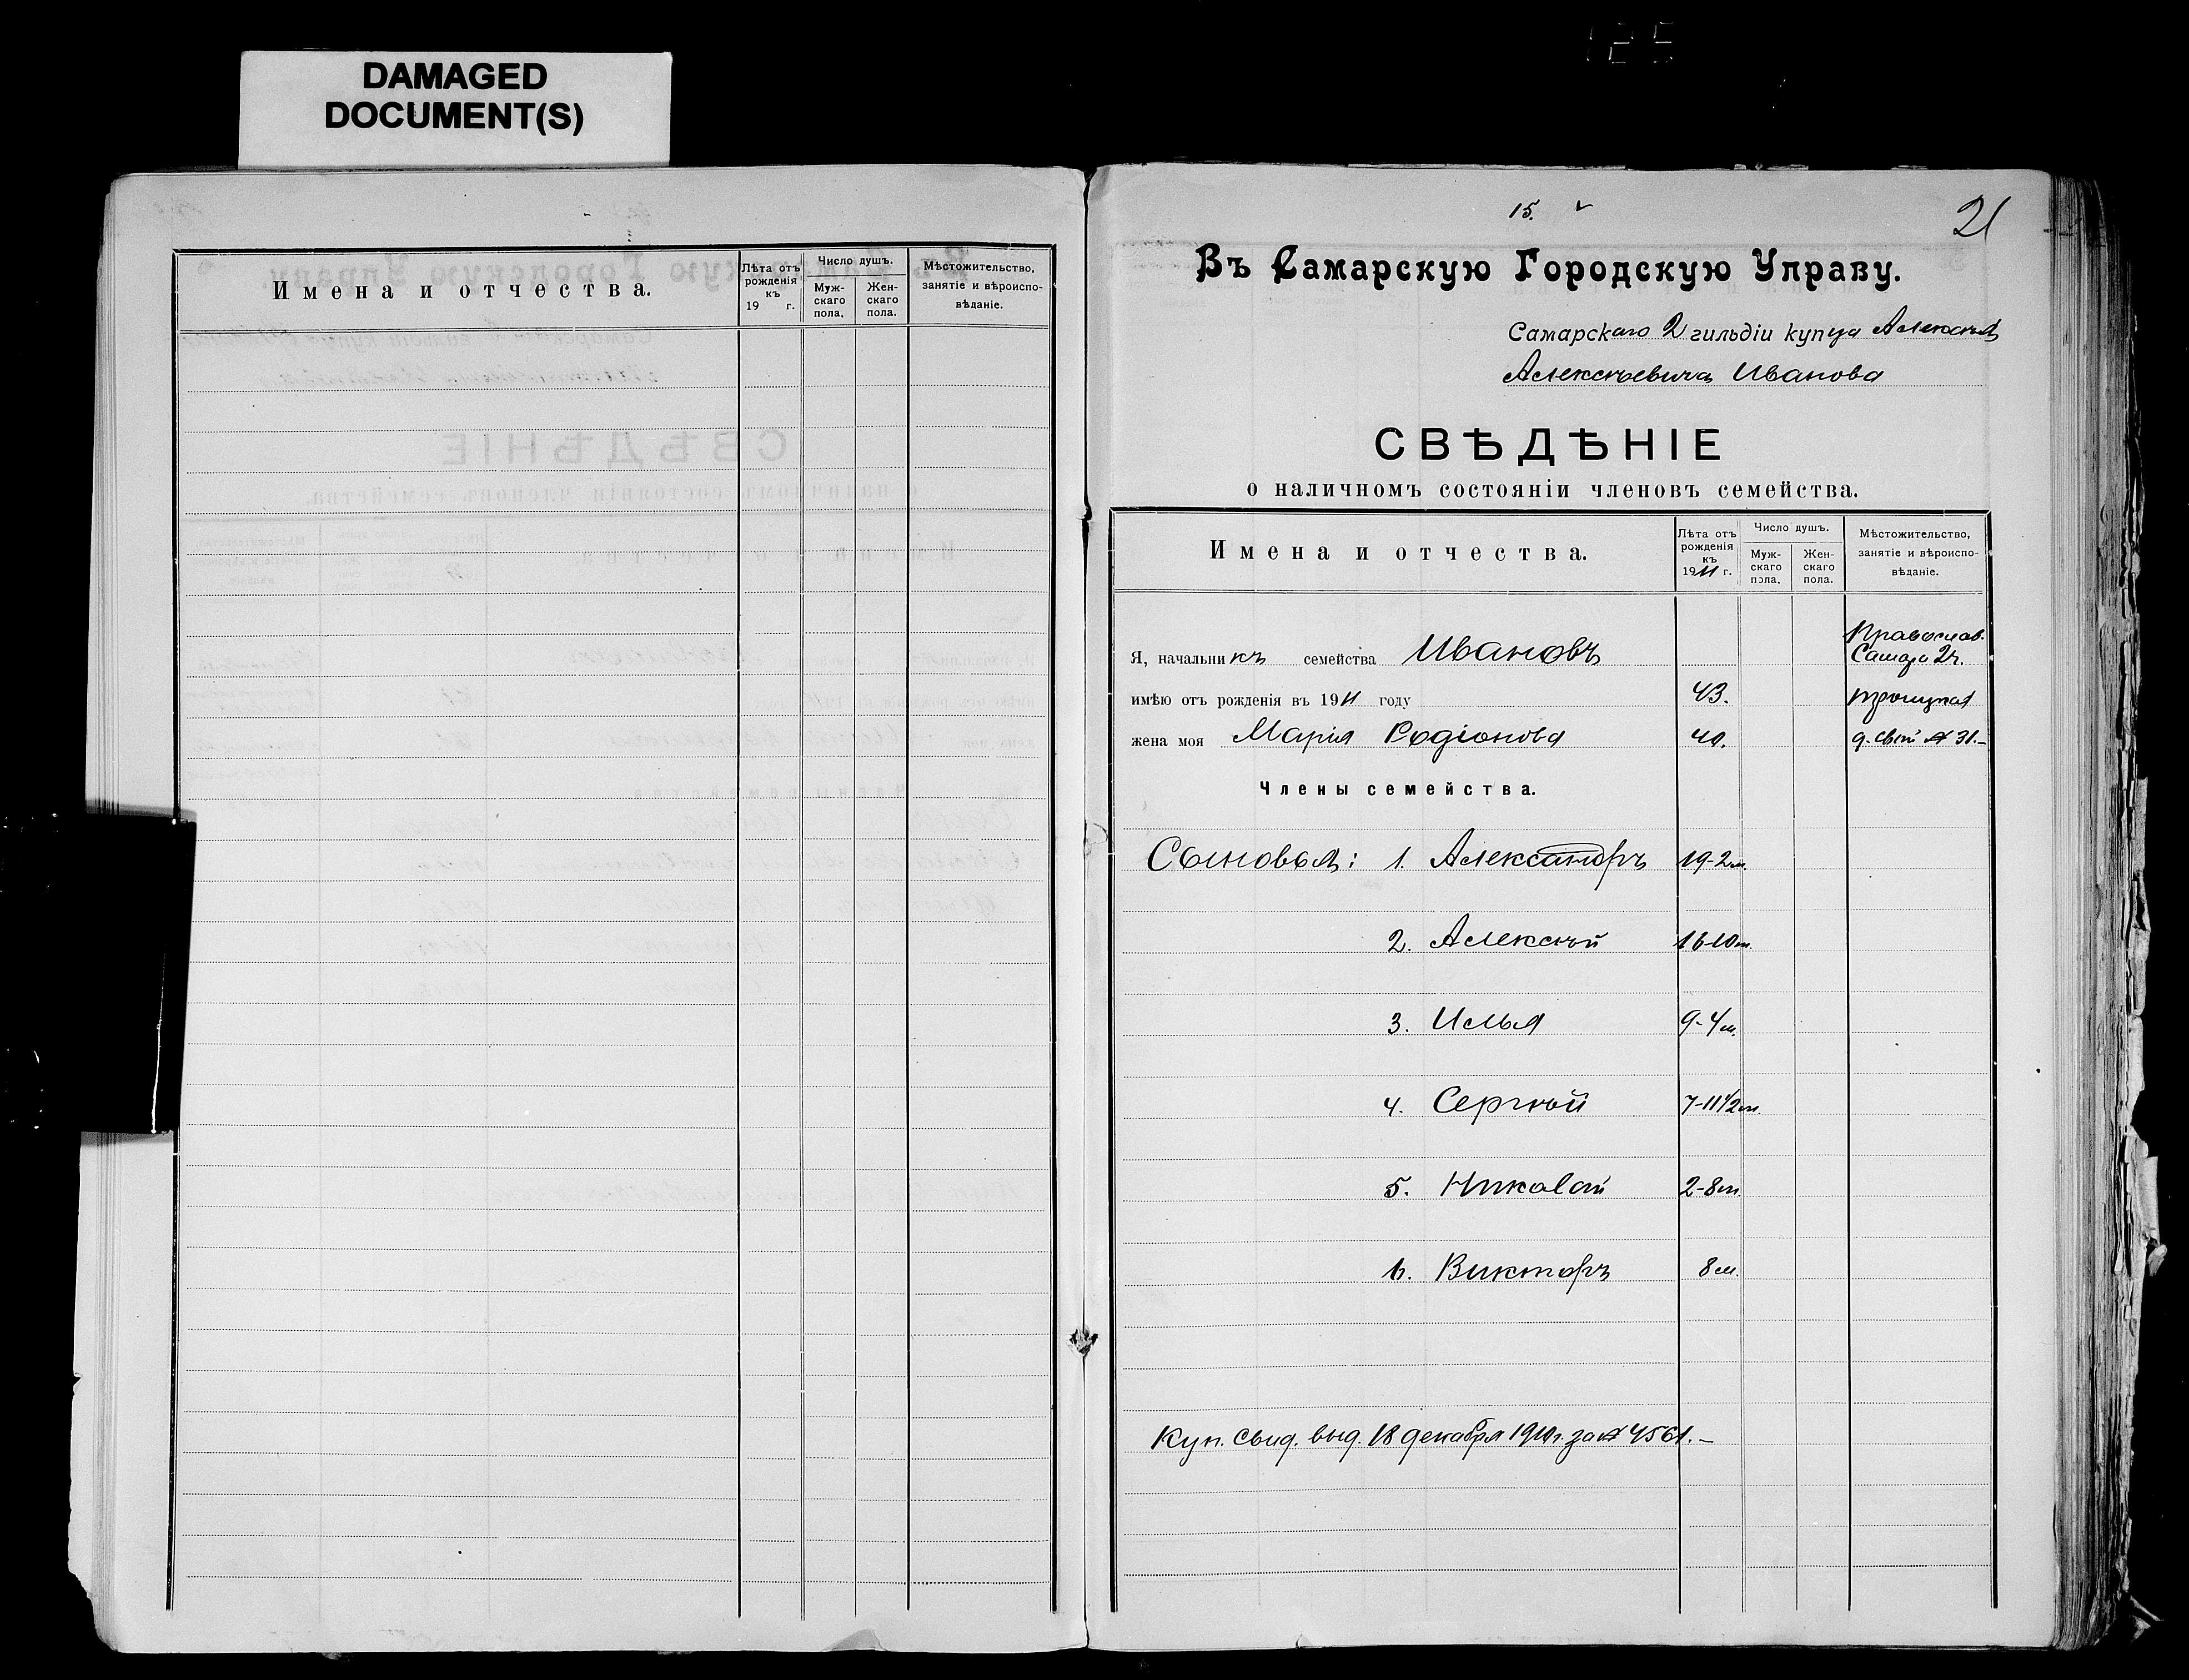 DAMAGED
DOCUMENT(S)
125
Имена и отчества.
Лѣта отъ рожденія къ 19 г.
Число душъ.
Муж-скаго пола.
Жен-скаго пола.
Мѣстожительство, занятіе и вѣроиспо-вѣданіе.
15.
21
Въ Самарскую Городскую Управу.
Самарскаго 2 гильдіи купца Алексѣя
Алексѣевича Иванова
СВѢДѢНІЕ
о наличномъ состояніи членовъ семейства.
Имена и отчества.
Лѣта отъ рожденія къ 1911 г.
Число душъ.
Муж-скаго пола.
Жен-скаго пола.
Мѣстожительство, занятіе и вѣроиспо-вѣданіе.
Православ.
Я, начальникъ семейства Ивановъ Самара 2ч.
имѣю отъ рожденія въ 1911 году 43. Троицкая
жена моя Марія Родіонова 40. д. свой № 31.-
Члены семейства.
Сыновья: 1. Александръ 19-2м.
2. Алексѣй 16-10м.
3. Илья 9-4м.
4. Сергѣй 7-11 1/2м.
5. Николай 2-8м.
6. Викторъ 8м.
Куп. свид. выд. 18 декабря 1910г. за № 4561.-